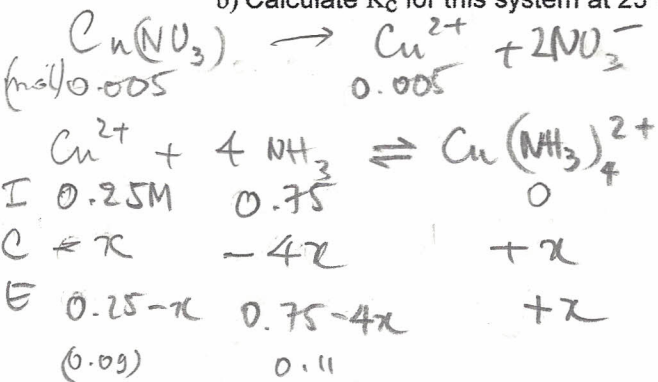 b) Calculate Kc for this system at 25
Cu(NO3) → Cu2+ + 2NO3-
(mol) 0.005 0.005
Cu2+ + 4 NH3 ⇌ Cu(NH3)4 2+
I 0.25M 0.75 0
C - x - 4x + x
E 0.25-x 0.75-4x +x
(0.09) 0.11